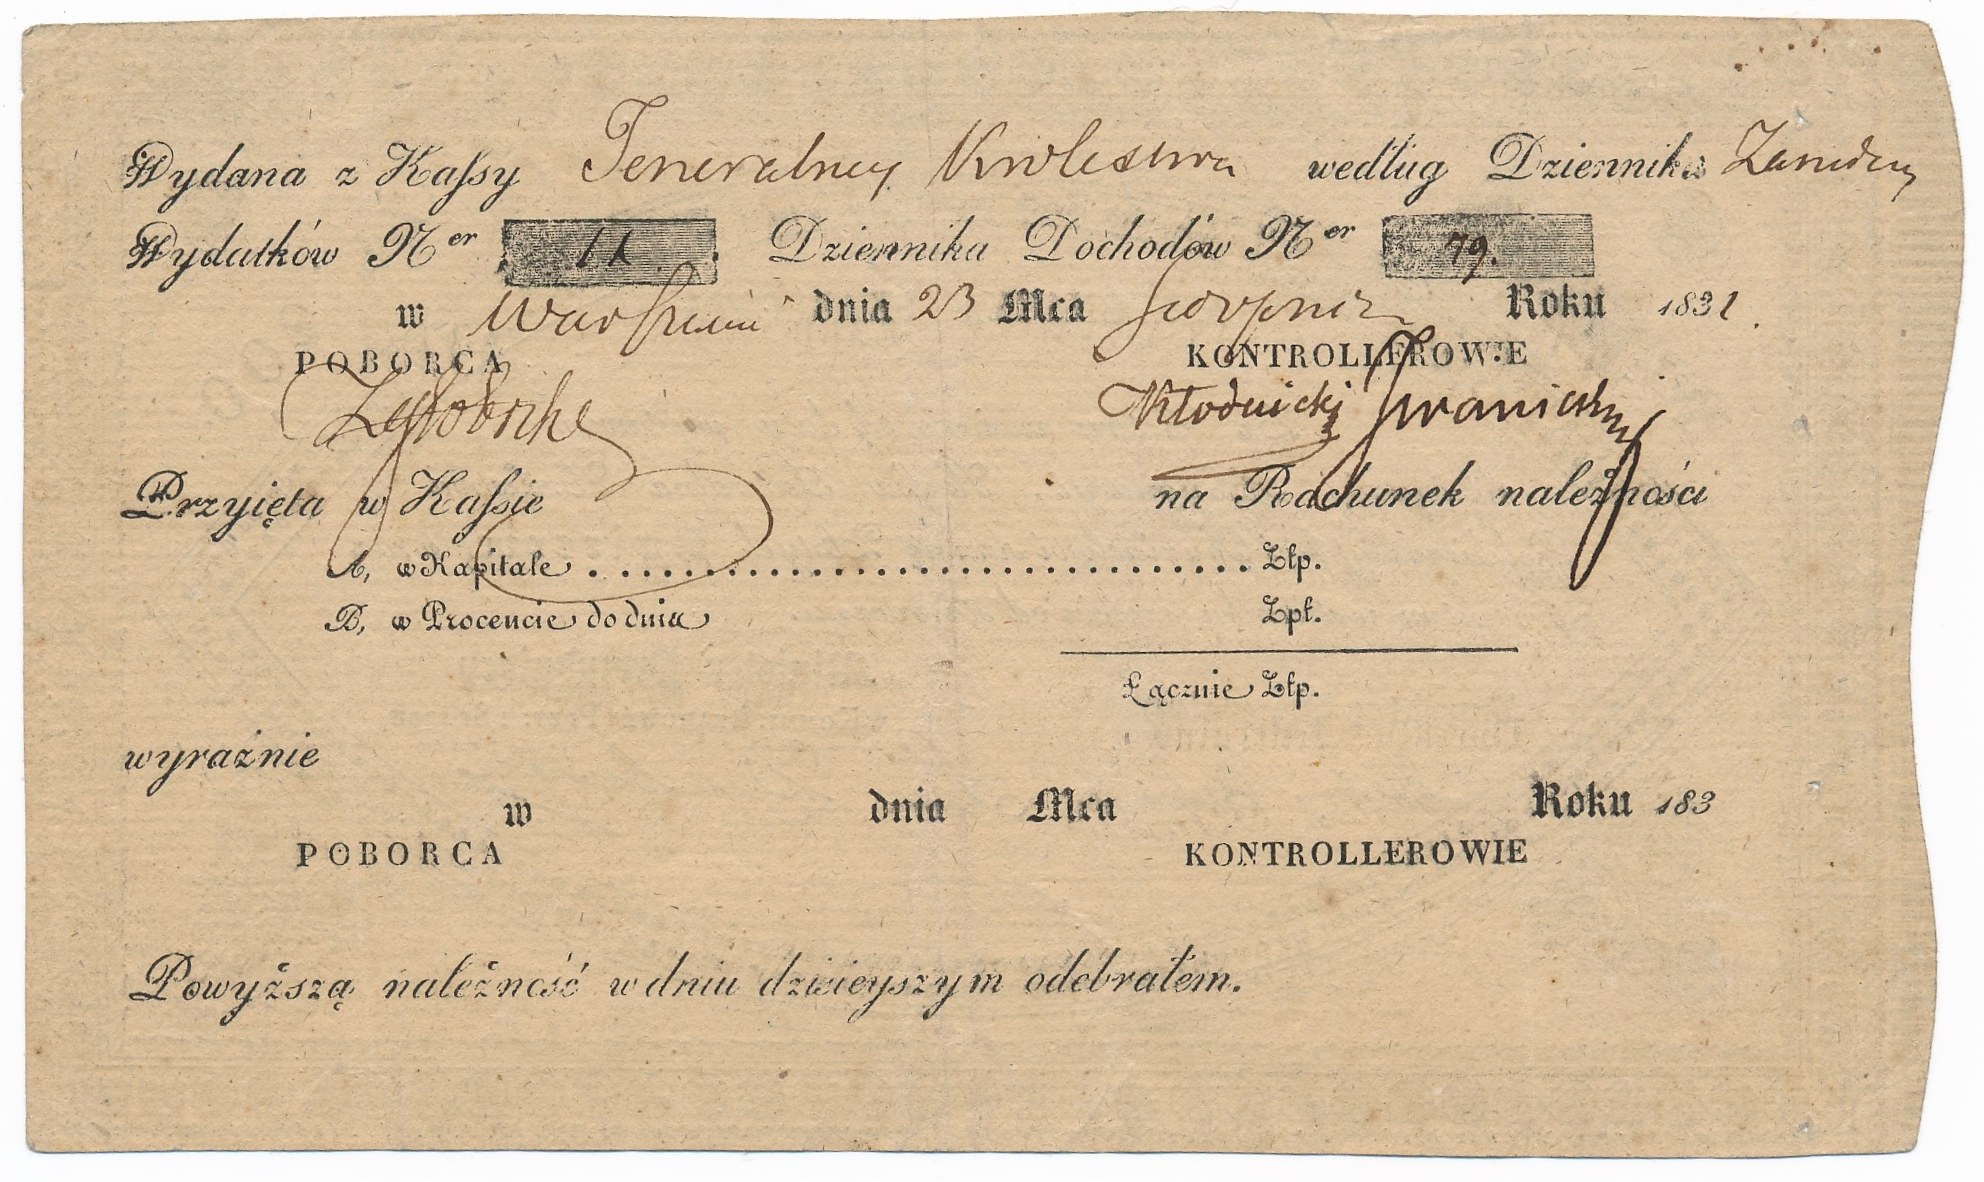 Wydana z Kaſsy Generalney Krolestwa według Dziennika
Wydatków Ner 11 Dziennika Dochodów Ner 79.
w Warszawie dnia 23 Mca Sierpnia Roku 1831.
POBORCA KONTROLLEROWIE
Kłodnicki Iwanicki
Przyięta w Kaſsie na Rachunek należności
A, w Kapitale .................................. Złp.
B, w Procencie do dnia Zpł.
Łącznie Złp.
wyraźnie
w dnia Mca Roku 183
POBORCA KONTROLLEROWIE
Powyższą należność w dniu dzisieyszym odebrałem.